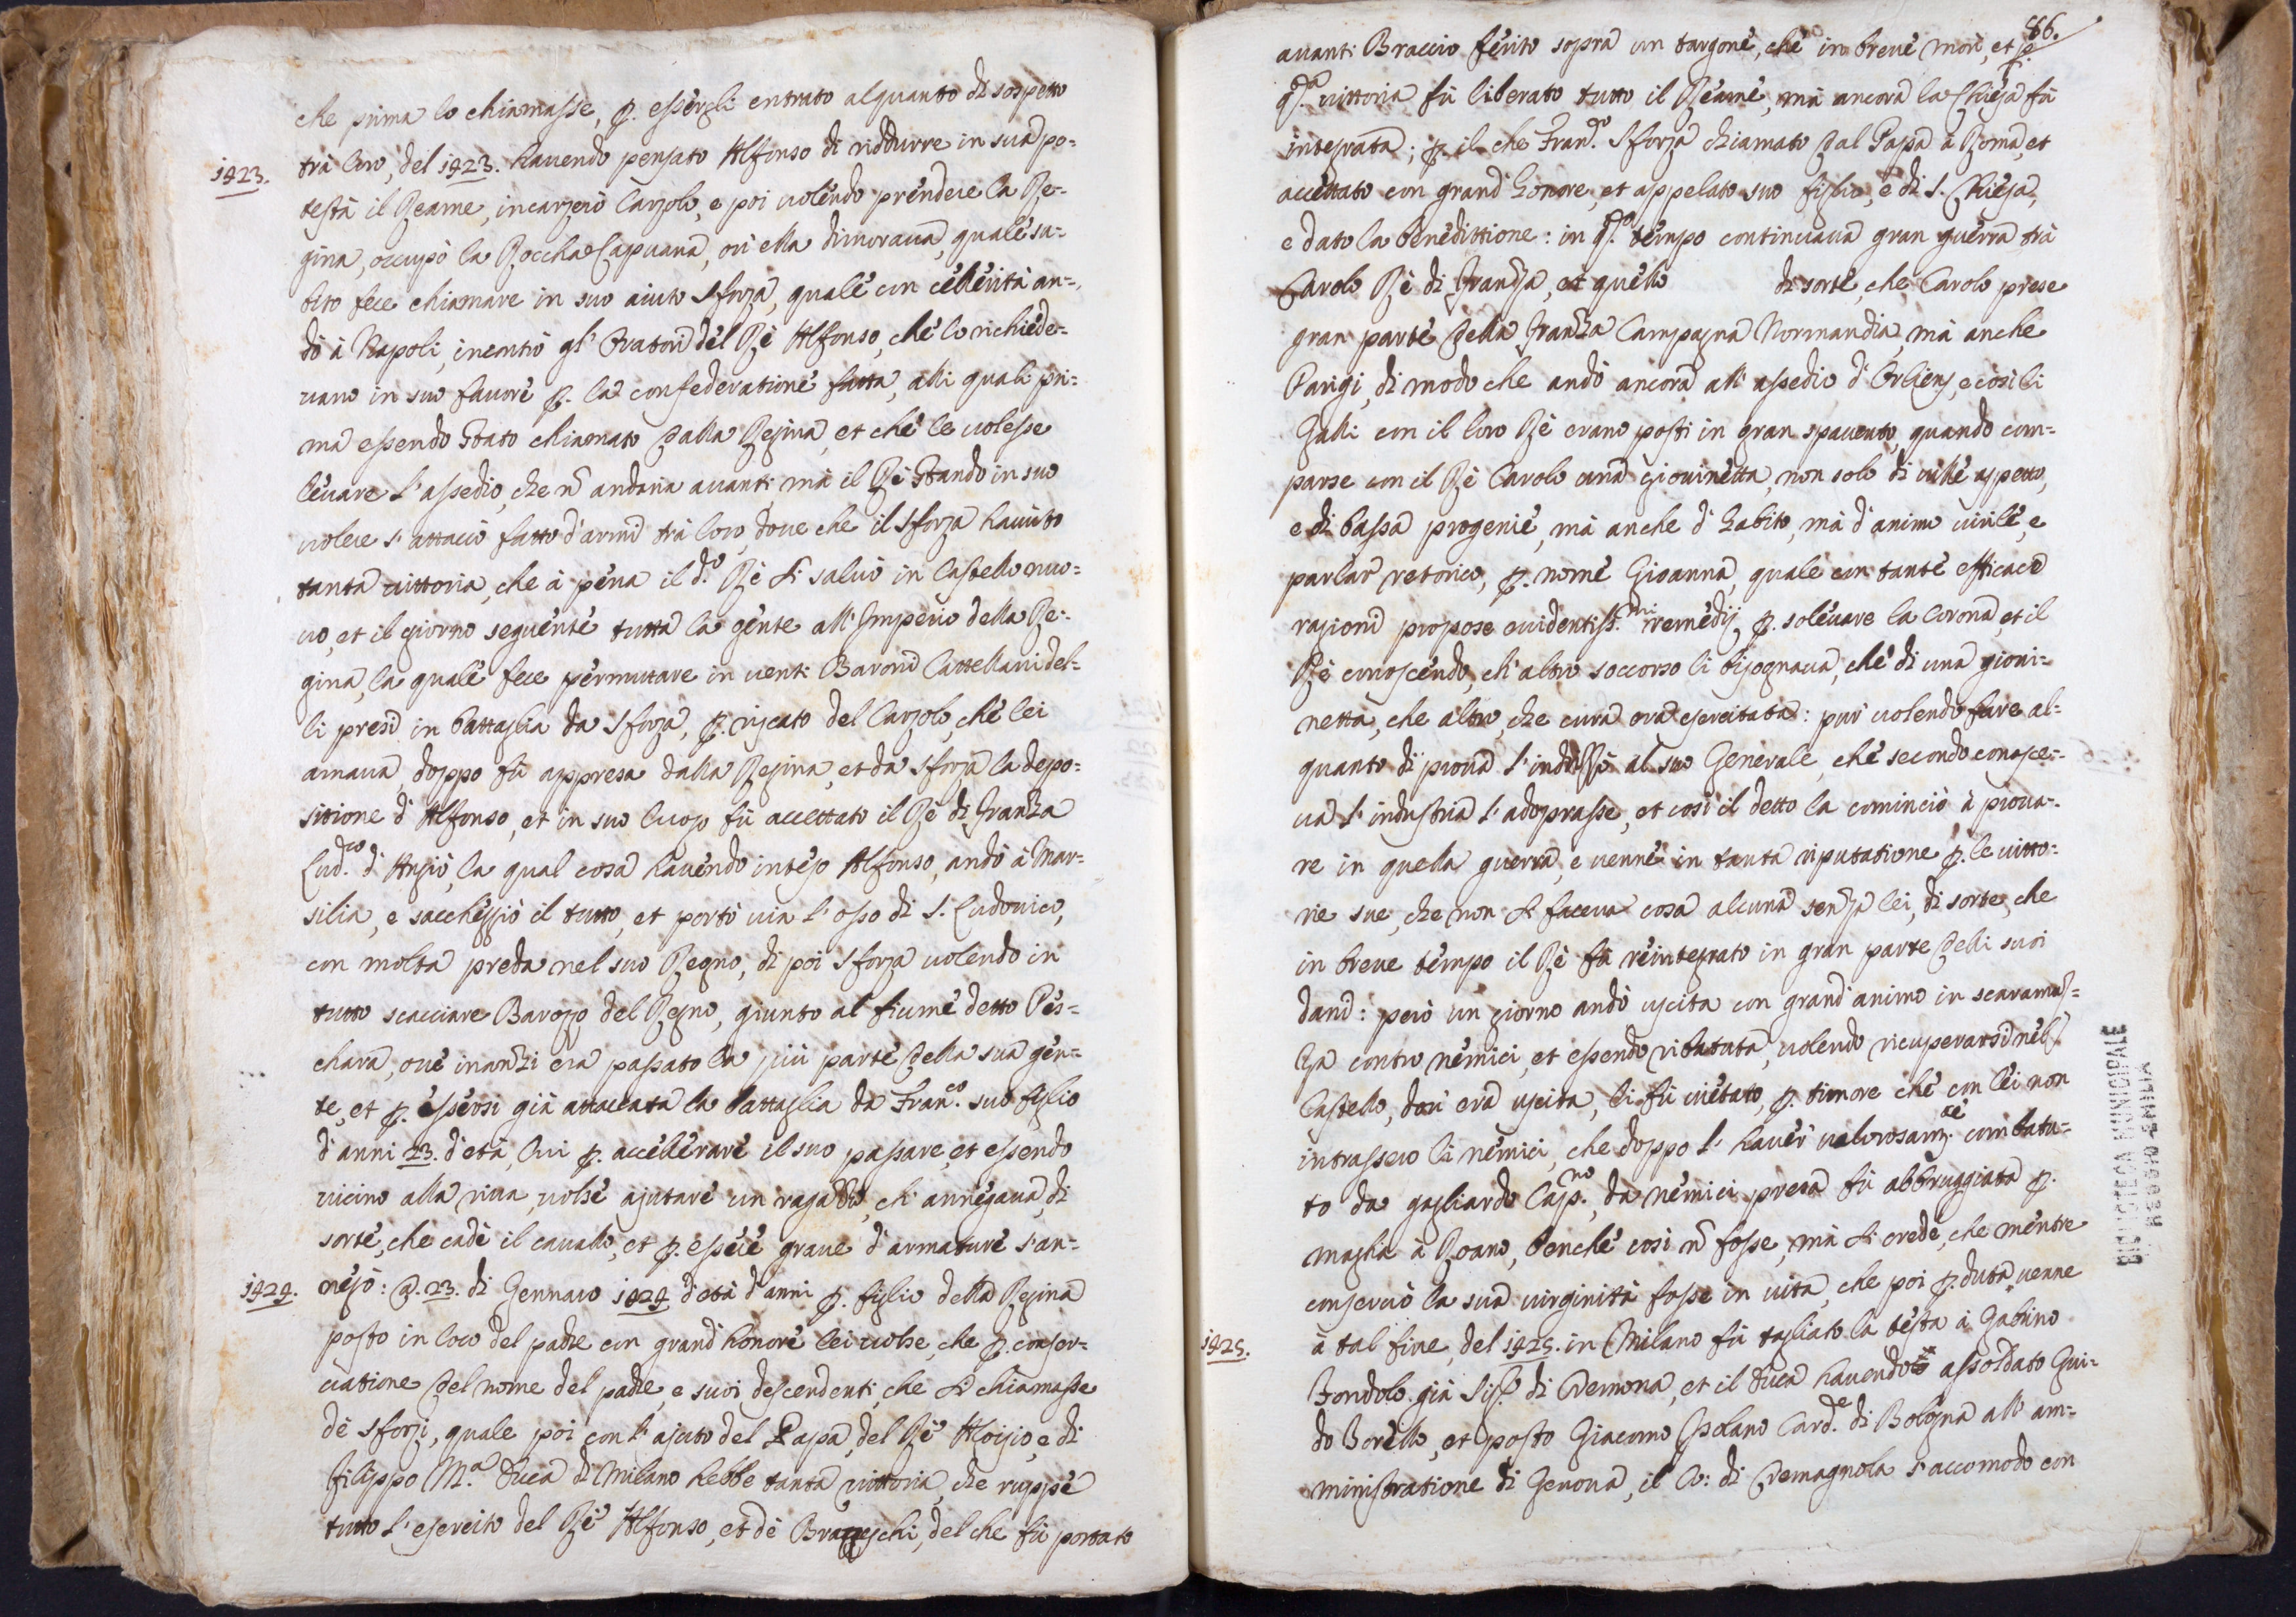 che prima lo chiamasse, p. essergli entrato alquanto di sospetto
1423.
trà loro, del 1423. havendo pensato Alfonso di riddurre in sua po=
testà il Reame, incarzerò Carzolo, e poi volendo prendere la Re=
gina, occupò la Roccha Capuana, ov' ella dimorava, quale su=
bito fece chiamare in suo aiuto Sforza, quale con cellerità an=
dò à Napoli, incontrò gl' Oratori del Rè Alfonso, che lo richiede=
vano in suo favore p. la confederatione fatta, alli quali pri=
ma essendo stato chiamato dalla Regina, et che le volesse
levare l' assedio, che nõ andaria avanti mà il Rè stando in suo
volere s' attacò fatto d' armi trà loro, dove che il Sforza havuto
tanta vittoria, che à pena il d.º Rè si salvò in Castello nuo=
vo, et il giorno seguente tutta la gente all' Imperio della Re=
gina, la quale fece permuttare in venti Baroni Cattellani del=
li presi in battaglia da Sforza, p. riscato del Carzolo, che lei
amava, doppo fù appresa dalla Regina, et da Sforza la depo=
sitione d' Alfonso, et in suo luogo fù accettato il Rè di Franza
Lud.co d' Angiò, la qual cosa havendo inteso Alfonso, andò à Mar=
silia, e saccheggiò il tutto, et portò via l' osso di S. Ludovico,
con molta preda nel suo Regno, di poi Sforza volendo in
tutto scacciare Barozo del Regno, giunto al fiume detto Pes=
chara, ove inanzi era passato la più parte della sua gen=
te, et p. essersi già attaccata la battaglia da Fran.co suo figlio
d' anni 23. d' età, lui p. accellerare il suo passare, et essendo
vicino alla riva, volse ajutare un ragazzo, ch' annegava, di
sorte, che cadè il cavallo, et p. essere grave d' armature s' an=
1424.
negò: @. 23. di Gennaro 1424 d' età d' anni p. figlio della Regina
posto in loco del padre con grand' honore lei volse, che p. conser=
vatione del nome del padre, e suoi descendenti, che si chiamasse
de Sforzi, quale poi con l' ajuto del Papa, del Rè Aloisio, e di
Filippo M.a Duca di Milano hebbe tanta vittoria, che ruppe
tutto l' esercito del Rè Alfonso, et dè Bracceschi, del che fù portato
86.
avanti Braccio ferito sopra un targone, che in breve morì, et p.
q.a vittoria fù liberato tutto il Reame, mà ancora la Chiesa fù
integrata; p. il che Fran.co Sforza chiamato dal Papa à Roma, et
accettato con grand' honore, et appelato suo figlio, e di S. Chiesa,
e dato la benedittione: in q.o tempo continuava gran guerra trà
Carolo Rè di Franza, et quello di sorte, che Carolo prese
gran parte della Franza Campagna Normandia, mà anche
Parigi, di modo che andò ancora all' assedio d' Orliens, e così li
Galli con il loro Rè erano posti in gran spavento, quando com=
parse con il Rè Carolo una giovinetta, non solo di ville aspetto,
e di bassa progenie, mà anche d' habito, mà d' animo virile, e
parlar retorico, p. nome Gioanna, quale con tante efficaci
ragioni propose evidentiss.mi remedij p. solevare la Corona, et il
Rè conoscendo, ch' altro soccorso li bisognava, che di una giovi=
netta, che altro, che cura era esercitata: pur volendo fare al=
quanto di prova l' indrizzò al suo Generale, che secondo conosce=
va l' industria l' adoprasse, et così il detto la cominciò à prova=
re in quella guerra, e venne in tanta riputatione p. le vitto=
rie sue, che non si faceva cosa alcuna senza lei, di sorte, che
in breve tempo il Rè fù reintegrato in gran parte delli suoi
danni: però un giorno andò uscita con grand' animo in scaramuz=
za contro nemici, et essendo ributata, volendo ricuperarsi nel
Castello, dov' era uscita, li fù vietato, p. timore che con lei non
intrassero li nemici, che doppo l' haver valorosam.te combatu=
to da gagliardo Cap.no, da nemici presa fù abbruggiata p.
maglia à Roano, benche così nõ fosse, mà si crede, che mentre
conservò la sua virginità fosse in vita, che poi p. duta, venne
1425.
à tal fine, del 1425. in Milano fù tagliato la testa à Gabrino
Fondolo già Sig.r di Cremona, et il Duca havendo assoldato Gui=
do Torello, et posto Giacomo Isolano Card.e di Bologna all' am=
ministratione di Genova, il Co: di Cremagnola s' accomodò con
BIBLIOTECA MUNICIPALE
REGGIO EMILIA